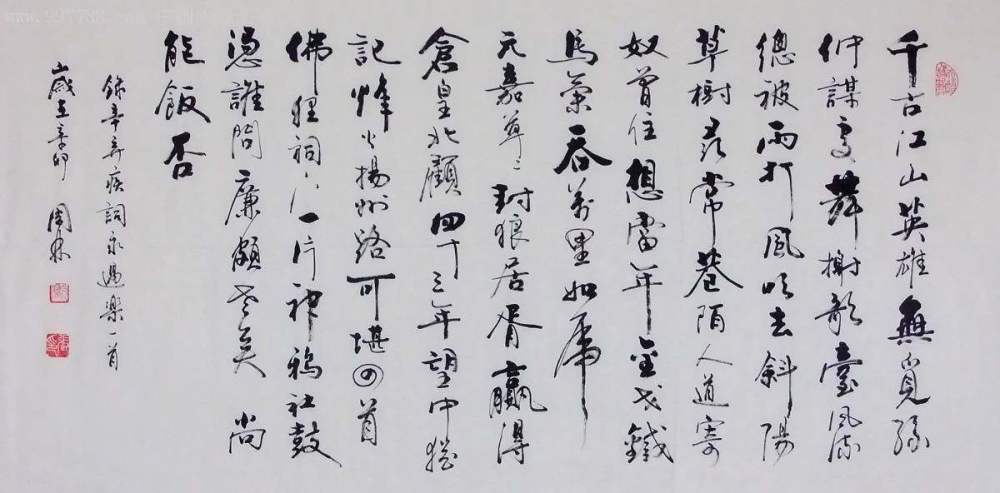 千古江山英雄無覓孫
仲謀處舞榭歌臺風流
總被雨打風吹去斜陽
草樹尋常巷陌人道寄
奴曾住想當年金戈鐵
馬氣吞萬里如虎
元嘉草々封狼居胥贏得
倉皇北顧四十三年望中猶
記烽火揚州路可堪回首
佛狸祠下一片神鴉社鼓
憑誰問廉頗老矣尚
能飯否
錄辛弃疾詞永遇樂一首
歲在辛卯 周